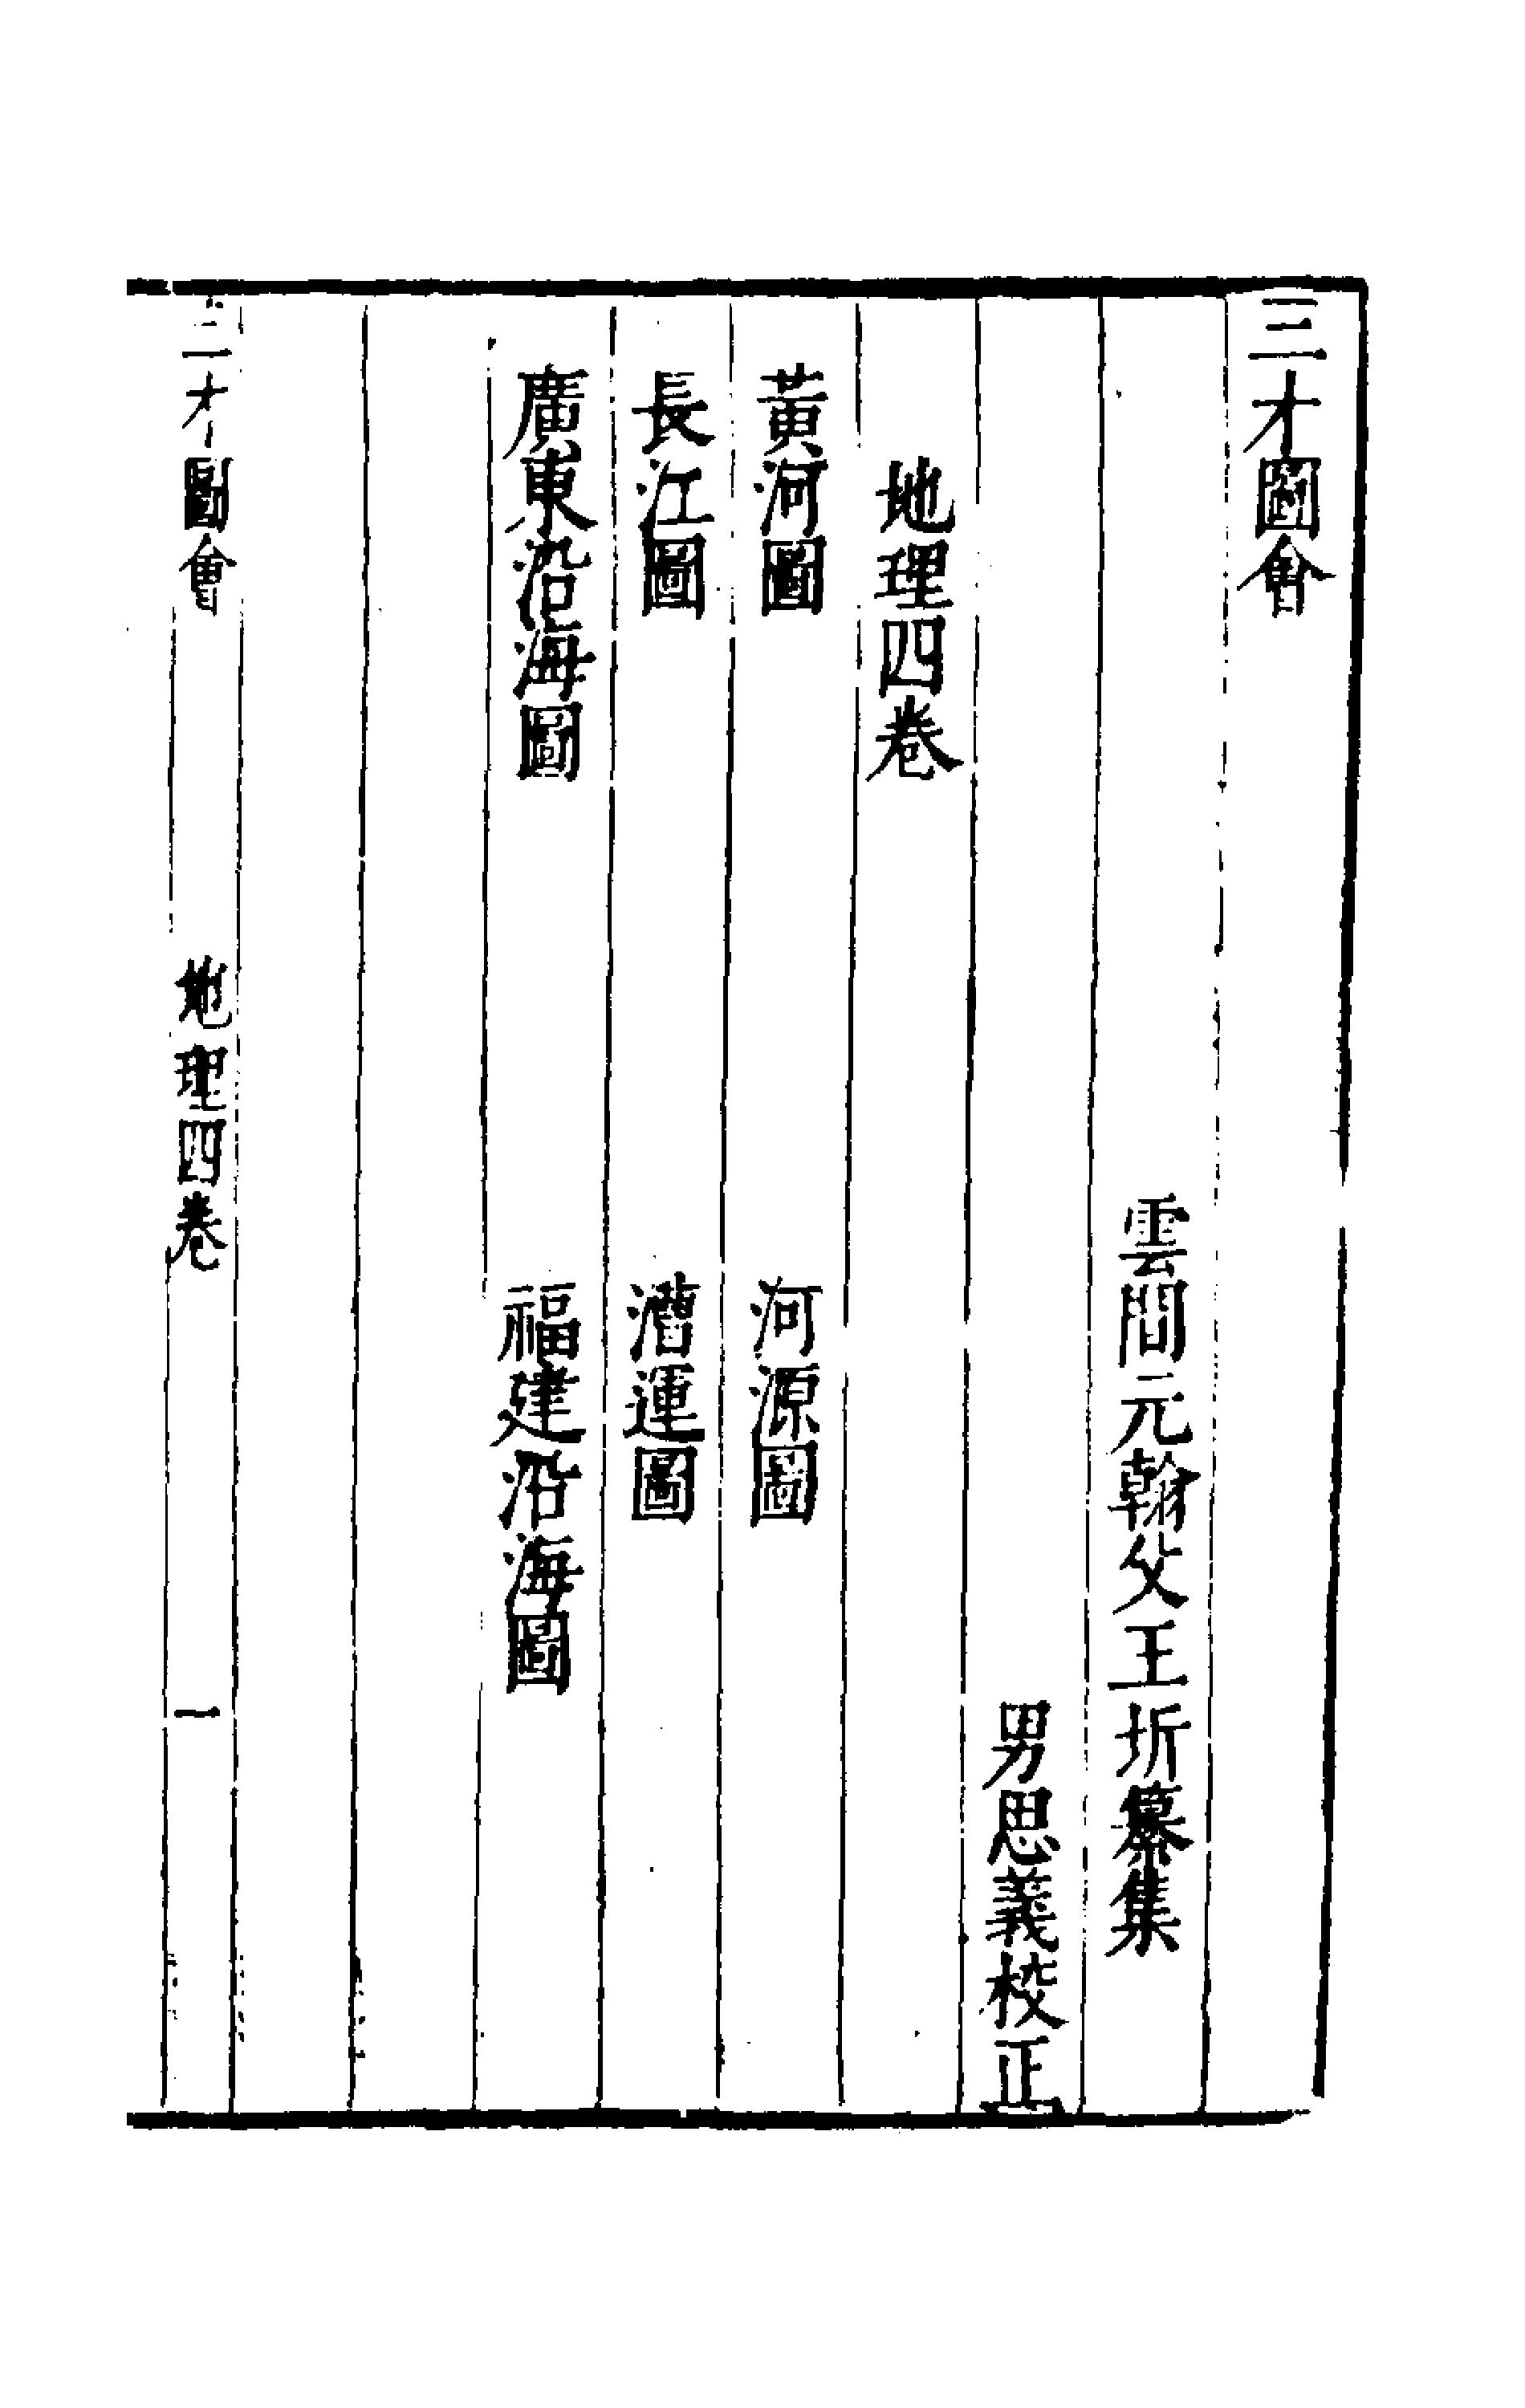 三才圖會
雲間元翰父王圻纂集
男思義校正
地理四卷
黃河圖
河源圖
長江圖
漕運圖
廣東沿海圖
福建沿海圖
三才圖會
地理四卷
一